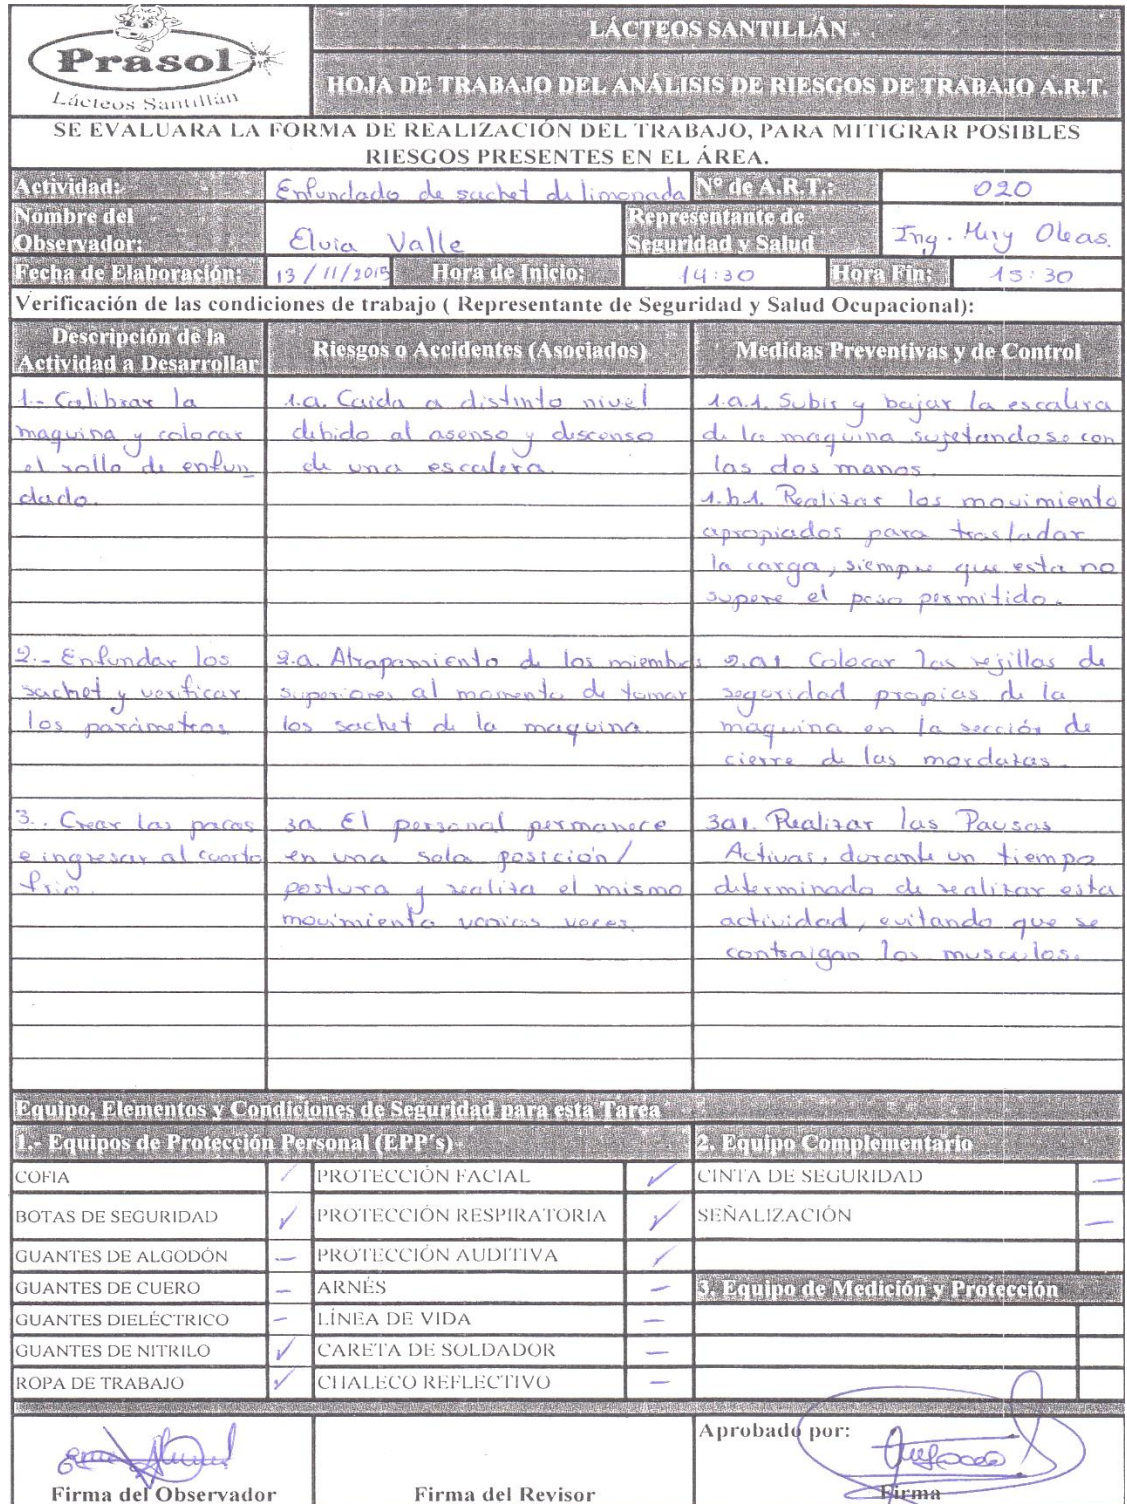 Prasol
Lácteos Santillán
LÁCTEOS SANTILLÁN
HOJA DE TRABAJO DEL ANÁLISIS DE RIESGOS DE TRABAJO A.R.T.
SE EVALUARA LA FORMA DE REALIZACIÓN DEL TRABAJO, PARA MITIGRAR POSIBLES
RIESGOS PRESENTES EN EL ÁREA.
Actividad: Enfundado de sachet de limonada Nº de A.R.T.: 020
Nombre del Observador: Elvia Valle Representante de Seguridad y Salud Ing. Oleas.
Fecha de Elaboración: 13/11/2015 Hora de Inicio: 14:30 Hora Fin: 15:30
Verificación de las condiciones de trabajo ( Representante de Seguridad y Salud Ocupacional):
Descripción de la
Actividad a Desarrollar
Riesgos o Accidentes (Asociados)
Medidas Preventivas y de Control
1.- Calibrar la
maquina y colocar
el rollo de enfun
dado.
1.a. Caida a distinto nivel
debido al asenso y descenso
de una escalera.
1.a.1. Subir y bajar la escalera
de la maquina sujetandose con
las dos manos.
1.b.1. Realizar los movimiento
apropiados para trasladar
la carga, siempre que esta no
supere el peso permitido.
2.- Enfundar los
sachet y verificar
los parámetros
2.a. Atrapamiento de los miembros
superiores al momento de tomar
los sachet de la maquina.
2.a1 Colocar las rejillas de
seguridad propias de la
maquina en la sección de
cierre de las mordazas.
3.. Crear las pacas
e ingresar al cuarto
frio.
3a El personal permanece
en una sola posición/
postura y realiza el mismo
movimiento varias veces.
3a1. Realizar las Pausas
Activas, durante un tiempo
determinado de realizar esta
actividad, evitando que se
contraigan los musculos.
Equipo, Elementos y Condiciones de Seguridad para esta Tarea
1.- Equipos de Protección Personal (EPP's)
2. Equipo Complementario
COFIA ✓ PROTECCIÓN FACIAL ✓ CINTA DE SEGURIDAD —
BOTAS DE SEGURIDAD ✓ PROTECCIÓN RESPIRATORIA ✓ SEÑALIZACIÓN —
GUANTES DE ALGODÓN — PROTECCIÓN AUDITIVA ✓
GUANTES DE CUERO — ARNÉS — 3. Equipo de Medición y Protección
GUANTES DIELÉCTRICO — LÍNEA DE VIDA —
GUANTES DE NITRILO ✓ CARETA DE SOLDADOR —
ROPA DE TRABAJO ✓ CHALECO REFLECTIVO —
Aprobado por:
Firma del Observador Firma del Revisor Firma